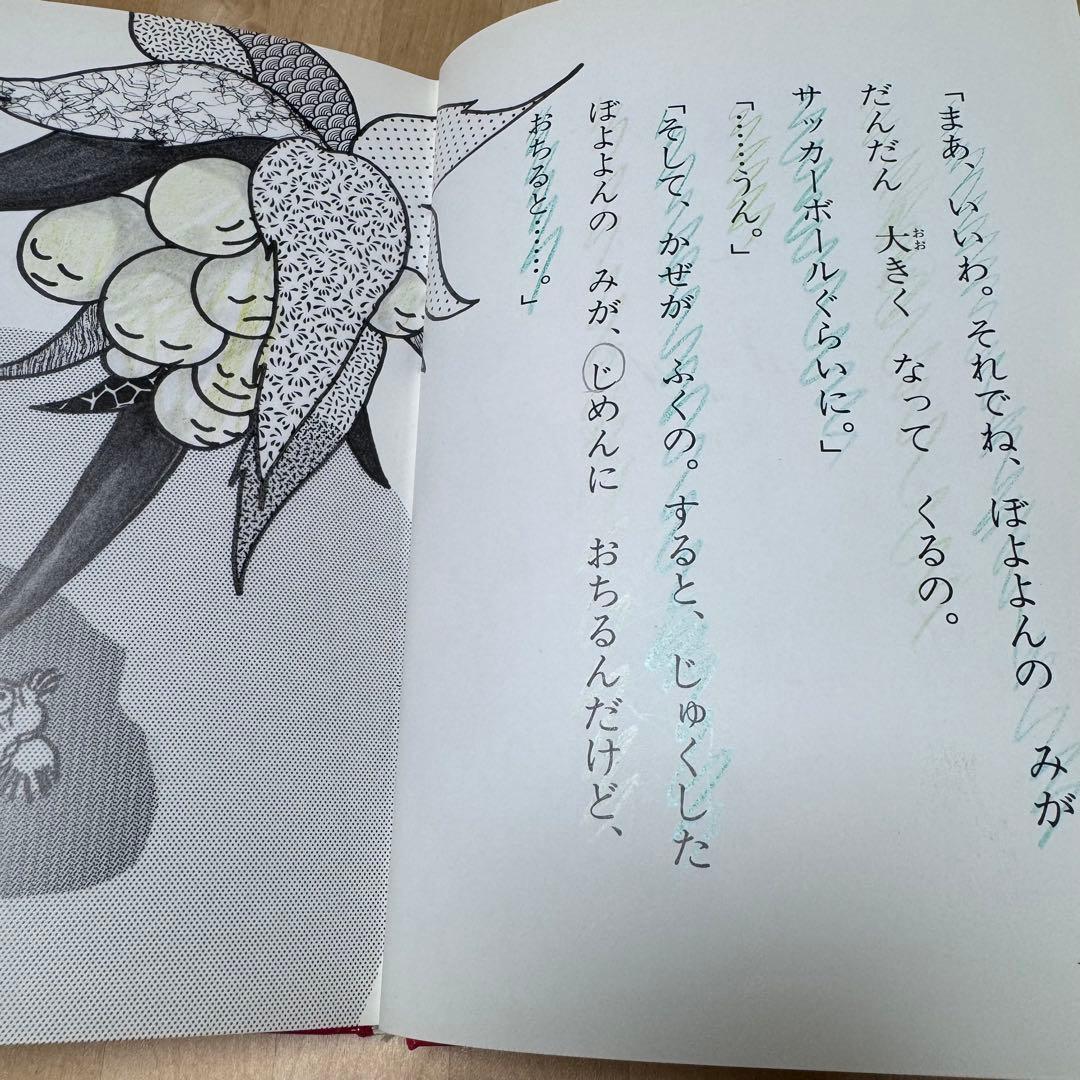 「まあ、いいわ。それでね、ぼよよんの みが
だんだん 大きく なって くるの。
サッカーボールぐらいに。」
「……うん。」
「そして、かぜが ふくの。すると、じゅくした
ぼよよんの みが、じめんに おちるんだけど、
おちると……。」